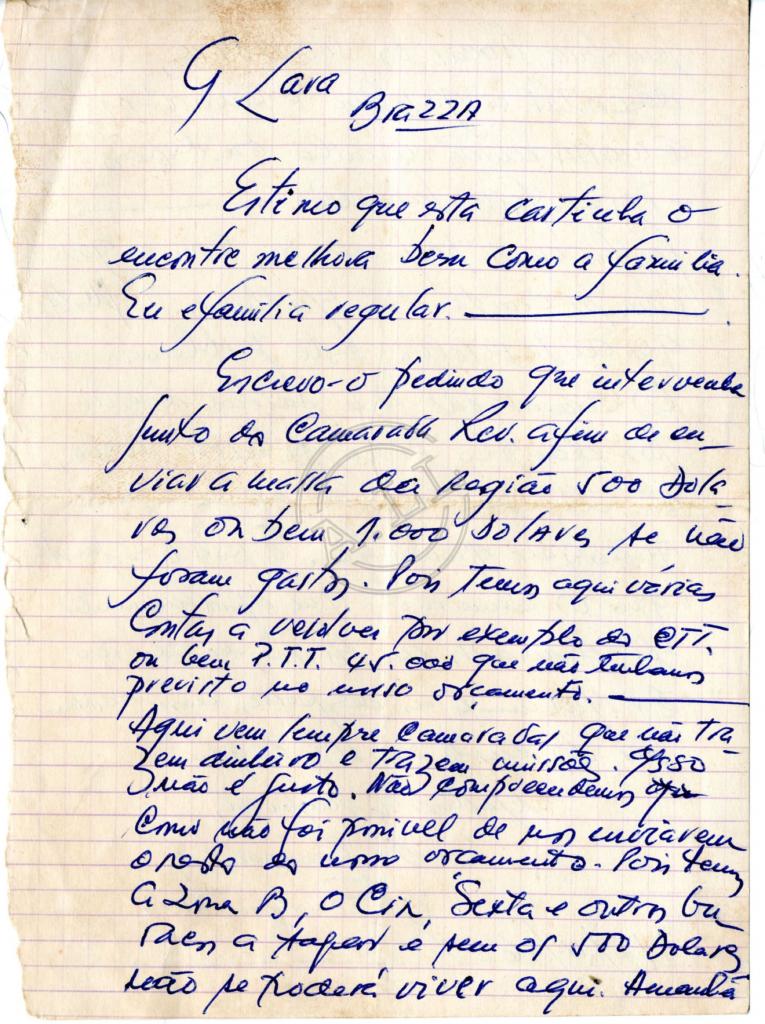 G Lara
Brazza
Estimo que esta cartinha o
encontre melhora bem como a família.
Eu e família regular.
Escrevo-o pedindo que intervenha
junto do Camarada Rev. afim de en-
viar a massa da região 500 Dola
res ou bem 1.000 Dolares se não
foram gastos. Pois temos aqui várias
Contas a resolver por exemplo do CTT.
ou bem P.T.T. 45.000 que não tinhamos
previsto no nosso orçamento.
Aqui vem sempre Camaradas que não tra
zem dinheiro e trazem missão. Isso
não é justo. Não compreendemos
como não foi possivel de nos enviarem
o resto do nosso orçamento. Pois temos
a Zona B, o Cir, Sexta e outros bu
racos a tapar e sem os 500 Dolares
não se poderá viver aqui. Amanhã